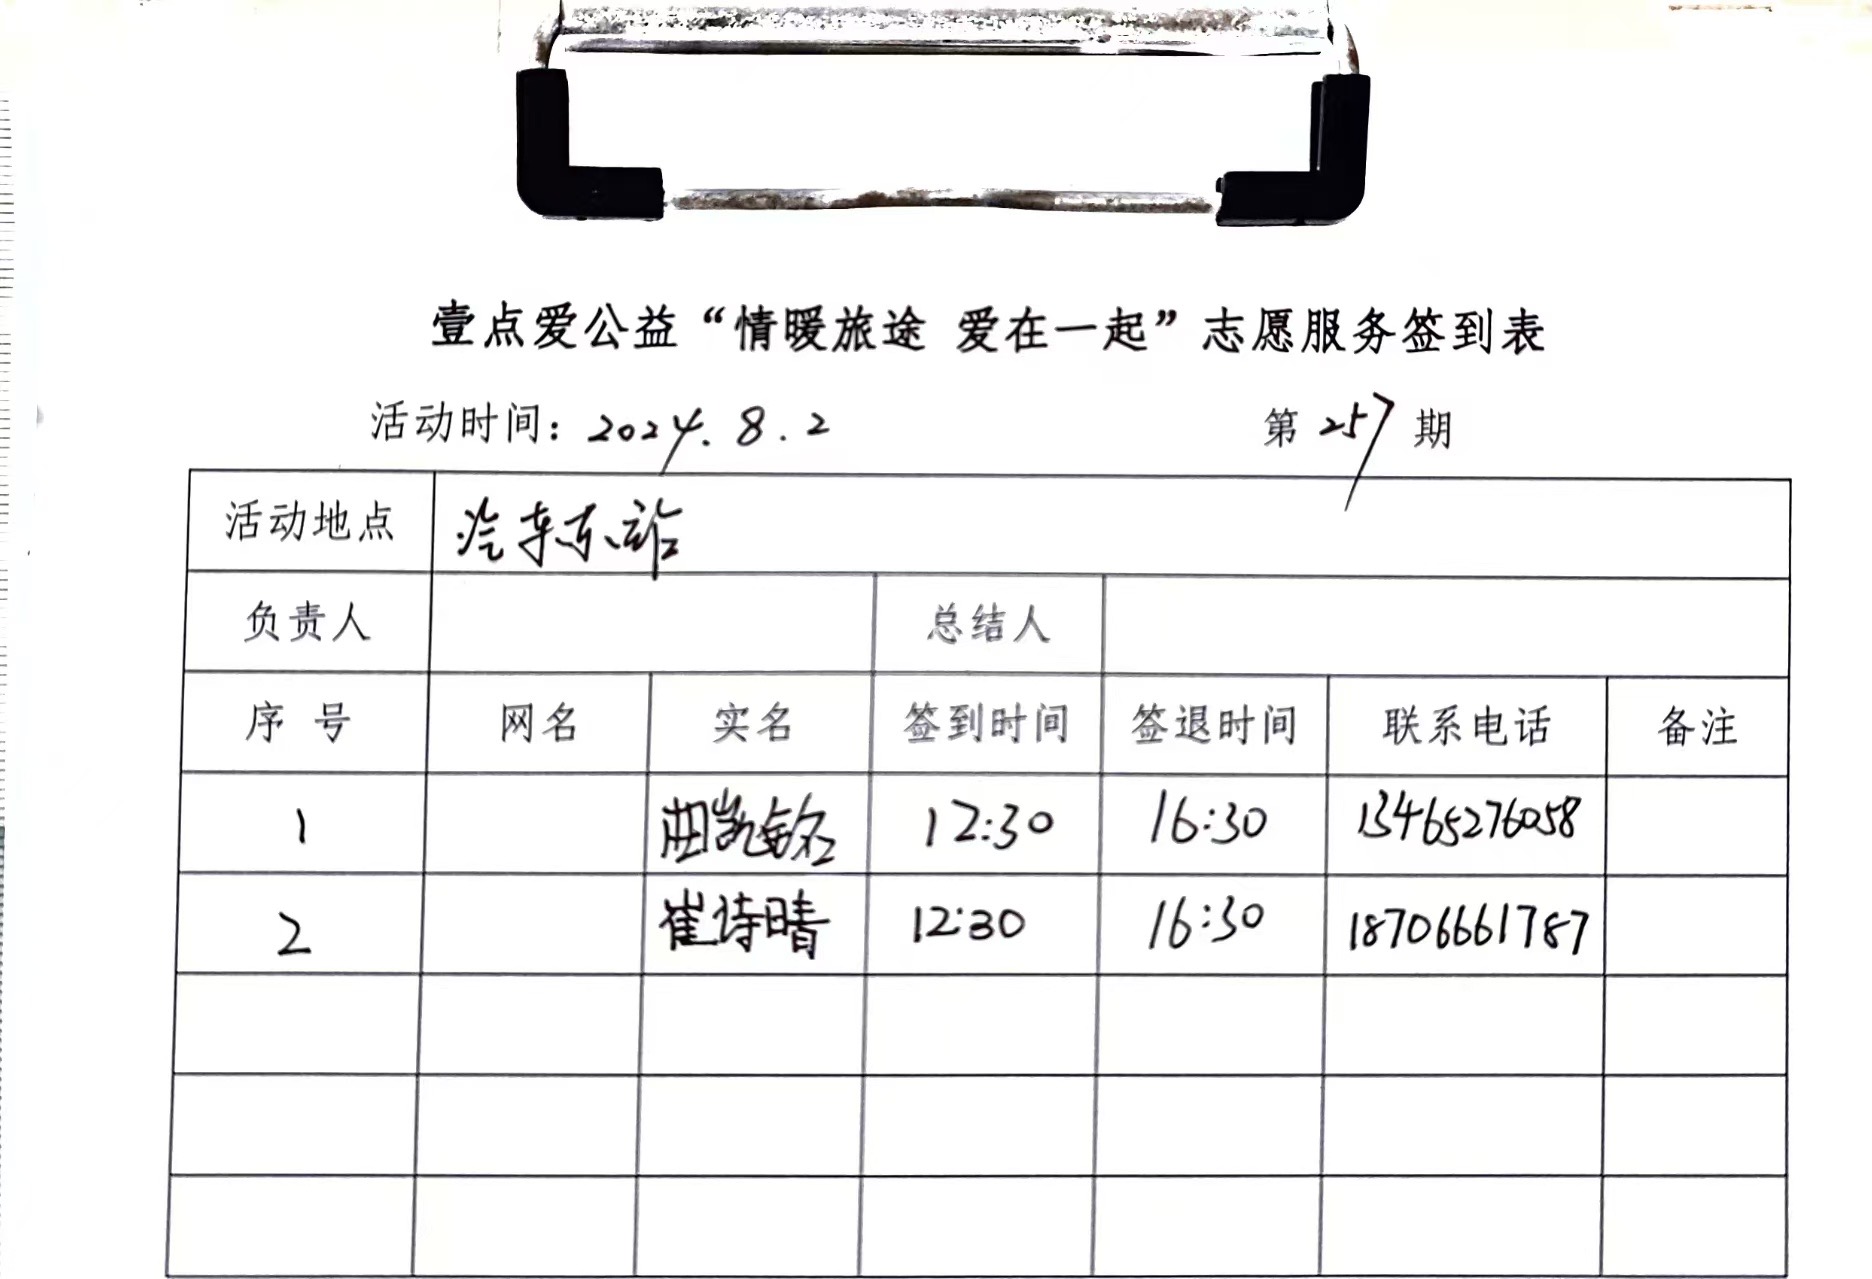 壹点爱公益“情暖旅途 爱在一起”志愿服务签到表
活动时间：2024.8.2 第257期
活动地点 汽车东站
负责人 总结人
序号 网名 实名 签到时间 签退时间 联系电话 备注
1 凯铭 12:30 16:30 13465276058
2 崔诗晴 12:30 16:30 18706661787